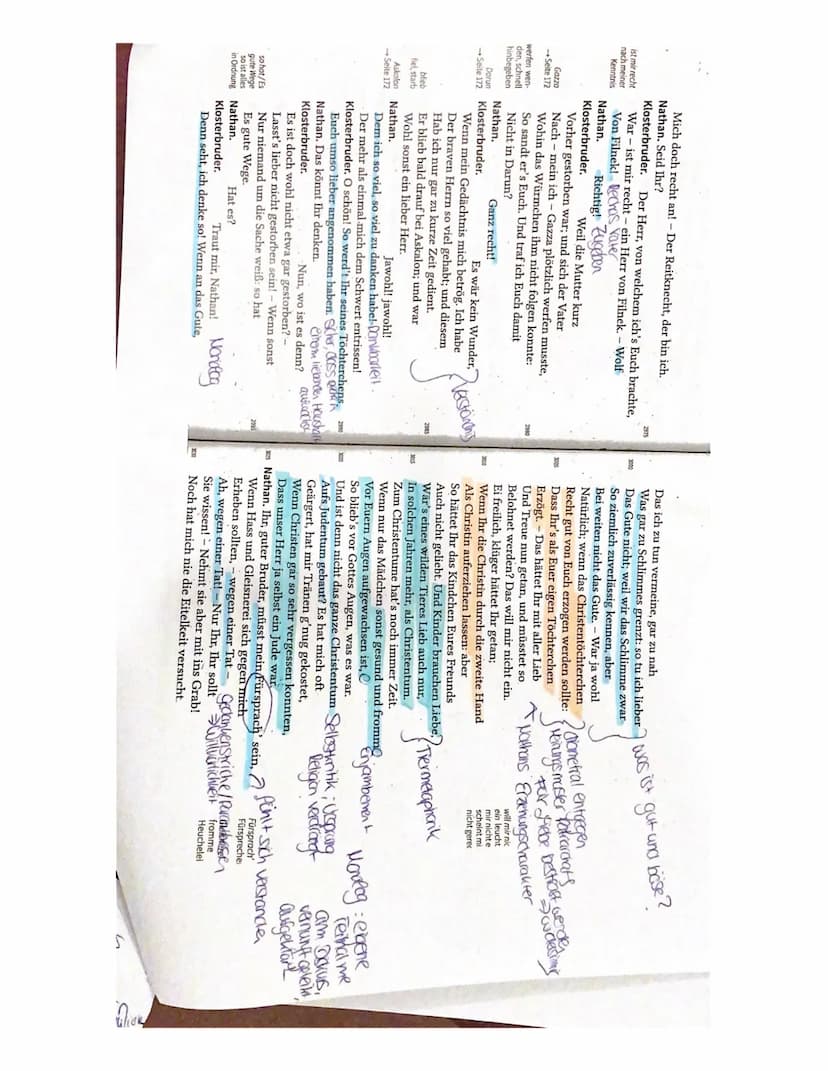 Mich doch recht an! – Der Reitknecht, der bin ich.
Nathan. Seid Ihr?
Klosterbruder. Der Herr, von welchem ich's Euch brachte,
ist mir recht
nach meiner
Kenntnis
War – ist mir recht – ein Herr von Filnek. – Wolf
2975
Von Filnek!
Nathan. Richtig! Zugeben
Klosterbruder. Weil die Mutter kurz
Vorher gestorben war; und sich der Vater
Gazza
→ Seite 172
Nach – mein ich – Gazza plötzlich werfen musste,
werfen wen-
den, schnell
hinbegeben
Wohin das Würmchen ihm nicht folgen konnte:
2980
So sandt er's Euch. Und traf ich Euch damit
Nicht in Darun?
Nathan. Ganz recht!
Darun
→ Seite 172
Klosterbruder. Es wär kein Wunder,
Wenn mein Gedächtnis mich betrög. Ich habe
Der braven Herrn so viel gehabt; und diesem
2985
Hab ich nur gar zu kurze Zeit gedient.
blieb
fiel, starb
Er blieb bald drauf bei Askalon; und war
Askalon
→ Seite 172
Wohl sonst ein lieber Herr.
Nathan. Jawohl! jawohl!
Dem ich so viel, so viel zu danken habe! Dankbarkeit
Der mehr als einmal mich dem Schwert entrissen!
Klosterbruder. O schön! So werd't Ihr seines Töchterchens
2990
Euch umso lieber angenommen haben.
Nathan. Das könnt Ihr denken.
Klosterbruder. Nun, wo ist es denn?
Es ist doch wohl nicht etwa gar gestorben? –
Lasst's lieber nicht gestorben sein! – Wenn sonst
so hat / Es
gute Wege
so ist alles
in Ordnung
Nur niemand um die Sache weiß: so hat
2995
Es gute Wege.
Nathan. Hat es?
Klosterbruder. Traut mir, Nathan! Monolog
Denn seht, ich denke so! Wenn an das Gute,
Das ich zu tun vermeine, gar zu nah
Was gar zu Schlimmes grenzt: so tu ich lieber
3000
Das Gute nicht; weil wir das Schlimme zwar
was ist gut und böse?
So ziemlich zuverlässig kennen, aber
Bei weiten nicht das Gute. – War ja wohl
Natürlich; wenn das Christentöchterchen
Recht gut von Euch erzogen werden sollte:
diametral entgegen
3005
Dass Ihr's als Euer eigen Töchterchen
Meinungsmuster Patriarchats
Erzögt. – Das hättet Ihr mit aller Lieb
für Liebe bestraft werden
Und Treue nun getan, und müsstet so
Nathans Erziehungscharakter
Belohnet werden? Das will mir nicht ein.
will mir nic
ein leucht
mir nicht e
scheint mi
nicht gerec
Ei freilich, klüger hättet Ihr getan;
3010
Wenn Ihr die Christin durch die zweite Hand
Als Christin auferziehen lassen: aber
So hättet Ihr das Kindchen Eures Freunds
Auch nicht geliebt. Und Kinder brauchen Liebe,
Wär's eines wilden Tieres Lieb auch nur,
Tiermetaphorik
3015
In solchen Jahren mehr, als Christentum.
Zum Christentume hat's noch immer Zeit.
Wenn nur das Mädchen sonst gesund und fromm
Vor Euern Augen aufgewachsen ist,
Enjambement
So blieb's vor Gottes Augen, was es war.
3020
Und ist denn nicht das ganze Christentum
Selbstkritik; Ursprung
Aufs Judentum gebaut? Es hat mich oft
Religion verdrängt
Geärgert, hat mir Tränen g'nug gekostet,
Wenn Christen gar so sehr vergessen konnten,
Dass unser Herr ja selbst ein Jude war.
Monolog: eigene
Teilnahme
am Diskurs,
3025
Nathan. Ihr, guter Bruder, müsst mein Fürsprach' sein,
fühlt sich verstanden
Wenn Hass und Gleisnerei sich gegen mich
Fürsprach'
Fürspreche
Erheben sollten, – wegen einer Tat –
fromme
Heuchelei
Ah, wegen einer Tat! – Nur Ihr, Ihr sollt
Gedankenstriche
Sie wissen! – Nehmt sie aber mit ins Grab!
3030
Noch hat mich nie die Eitelkeit versucht,